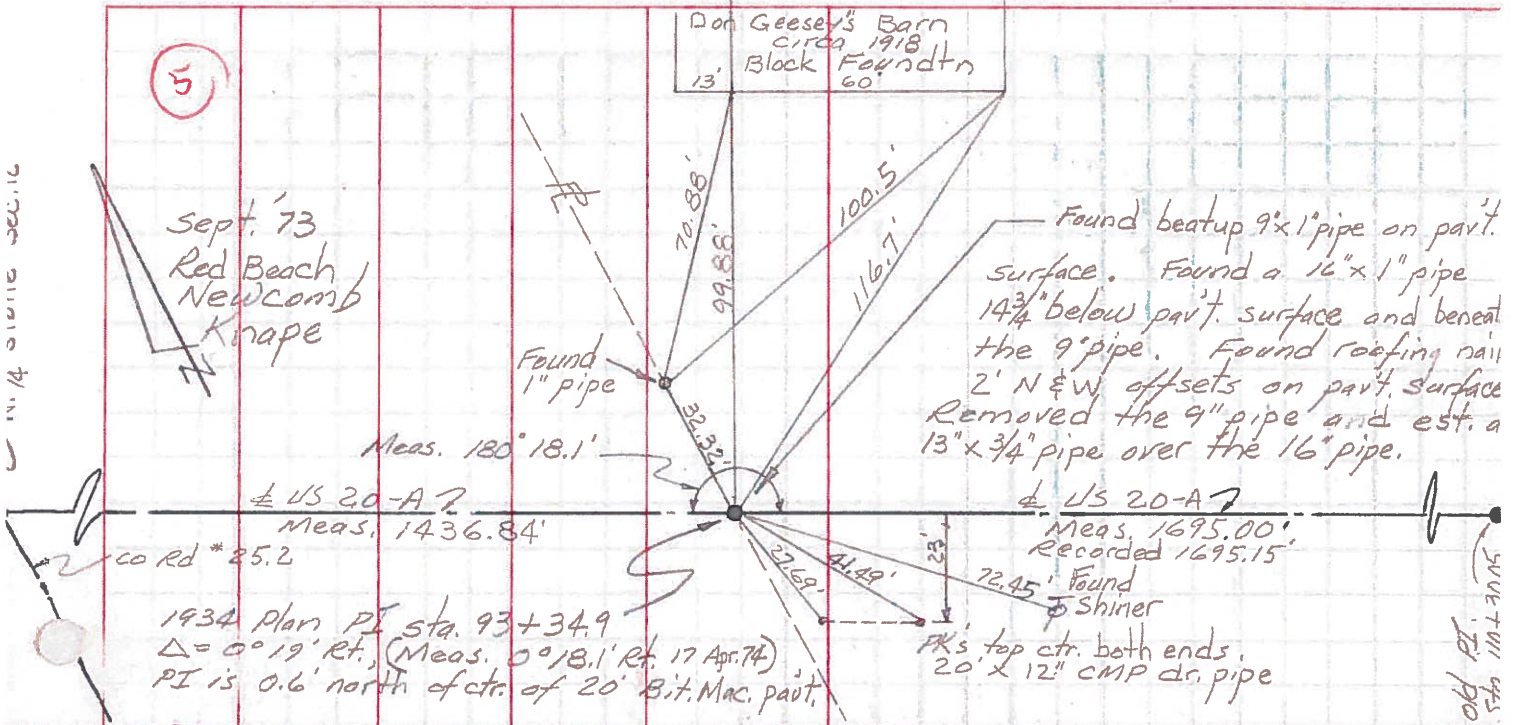 5
Don Geesey's Barn
circa 1918
Block Foundtn
13' 60'
Sept. '73
Red Beach
Newcomb
Knape
N
70.88'
99.88'
100.5'
116.7'
Found
1" pipe
32.32'
Meas. 180° 18.1'
Found beatup 9"x1" pipe on pav't.
surface. Found a 16"x 1" pipe
14 3/4" below pav't. surface and beneat
the 9" pipe. Found roofing nail
2' N & W offsets on pav't. surface
Removed the 9" pipe and est. a
13"x 3/4" pipe over the 16" pipe.
℄ US 20-A
Meas. 1436.84'
co Rd #25.2
℄ US 20-A
Meas. 1695.00'
Recorded 1695.15'
23'
27.69'
41.49'
72.45'
Found
Shiner
PK's top ctr. both ends
20' x 12" CMP dr. pipe
1934 Plan PI sta. 93+34.9
Δ= 0° 19' Rt. (Meas. 0° 18.1' Rt. 17 Apr. 74)
PI is 0.6' north of ctr. of 20' Bit. Mac. pavt.
N 1/4 stone Sec. 12
PI